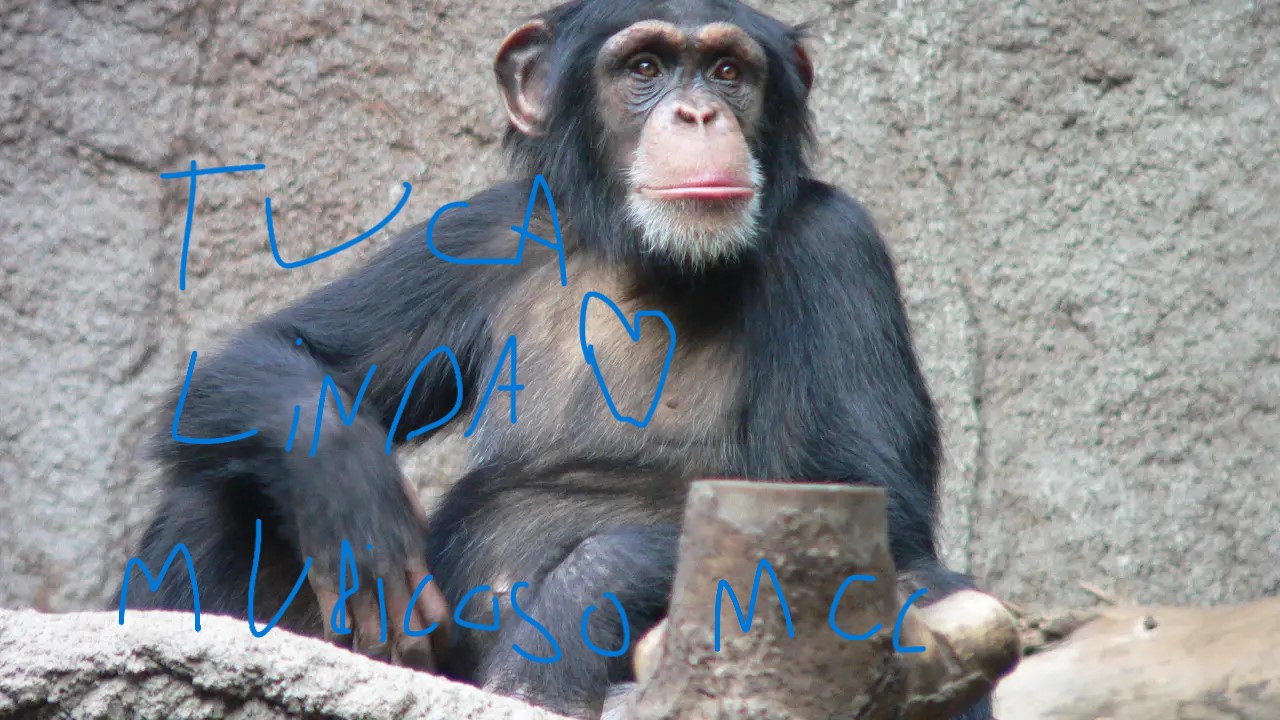 TUCA
LiNDA ♡
MURicoso MCC